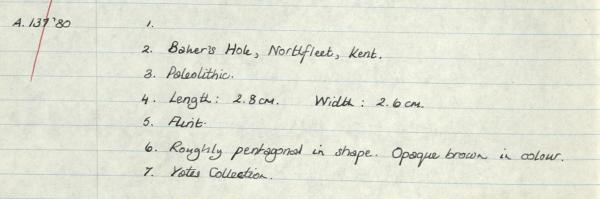 A. 137'80
1.
2. Baker's Hole, Northfleet, Kent.
3. Paleolithic.
4. Length: 2.8cm. Width: 2.6cm.
5. Flint.
6. Roughly pentagonal in shape. Opaque brown in colour.
7. Yates Collection.